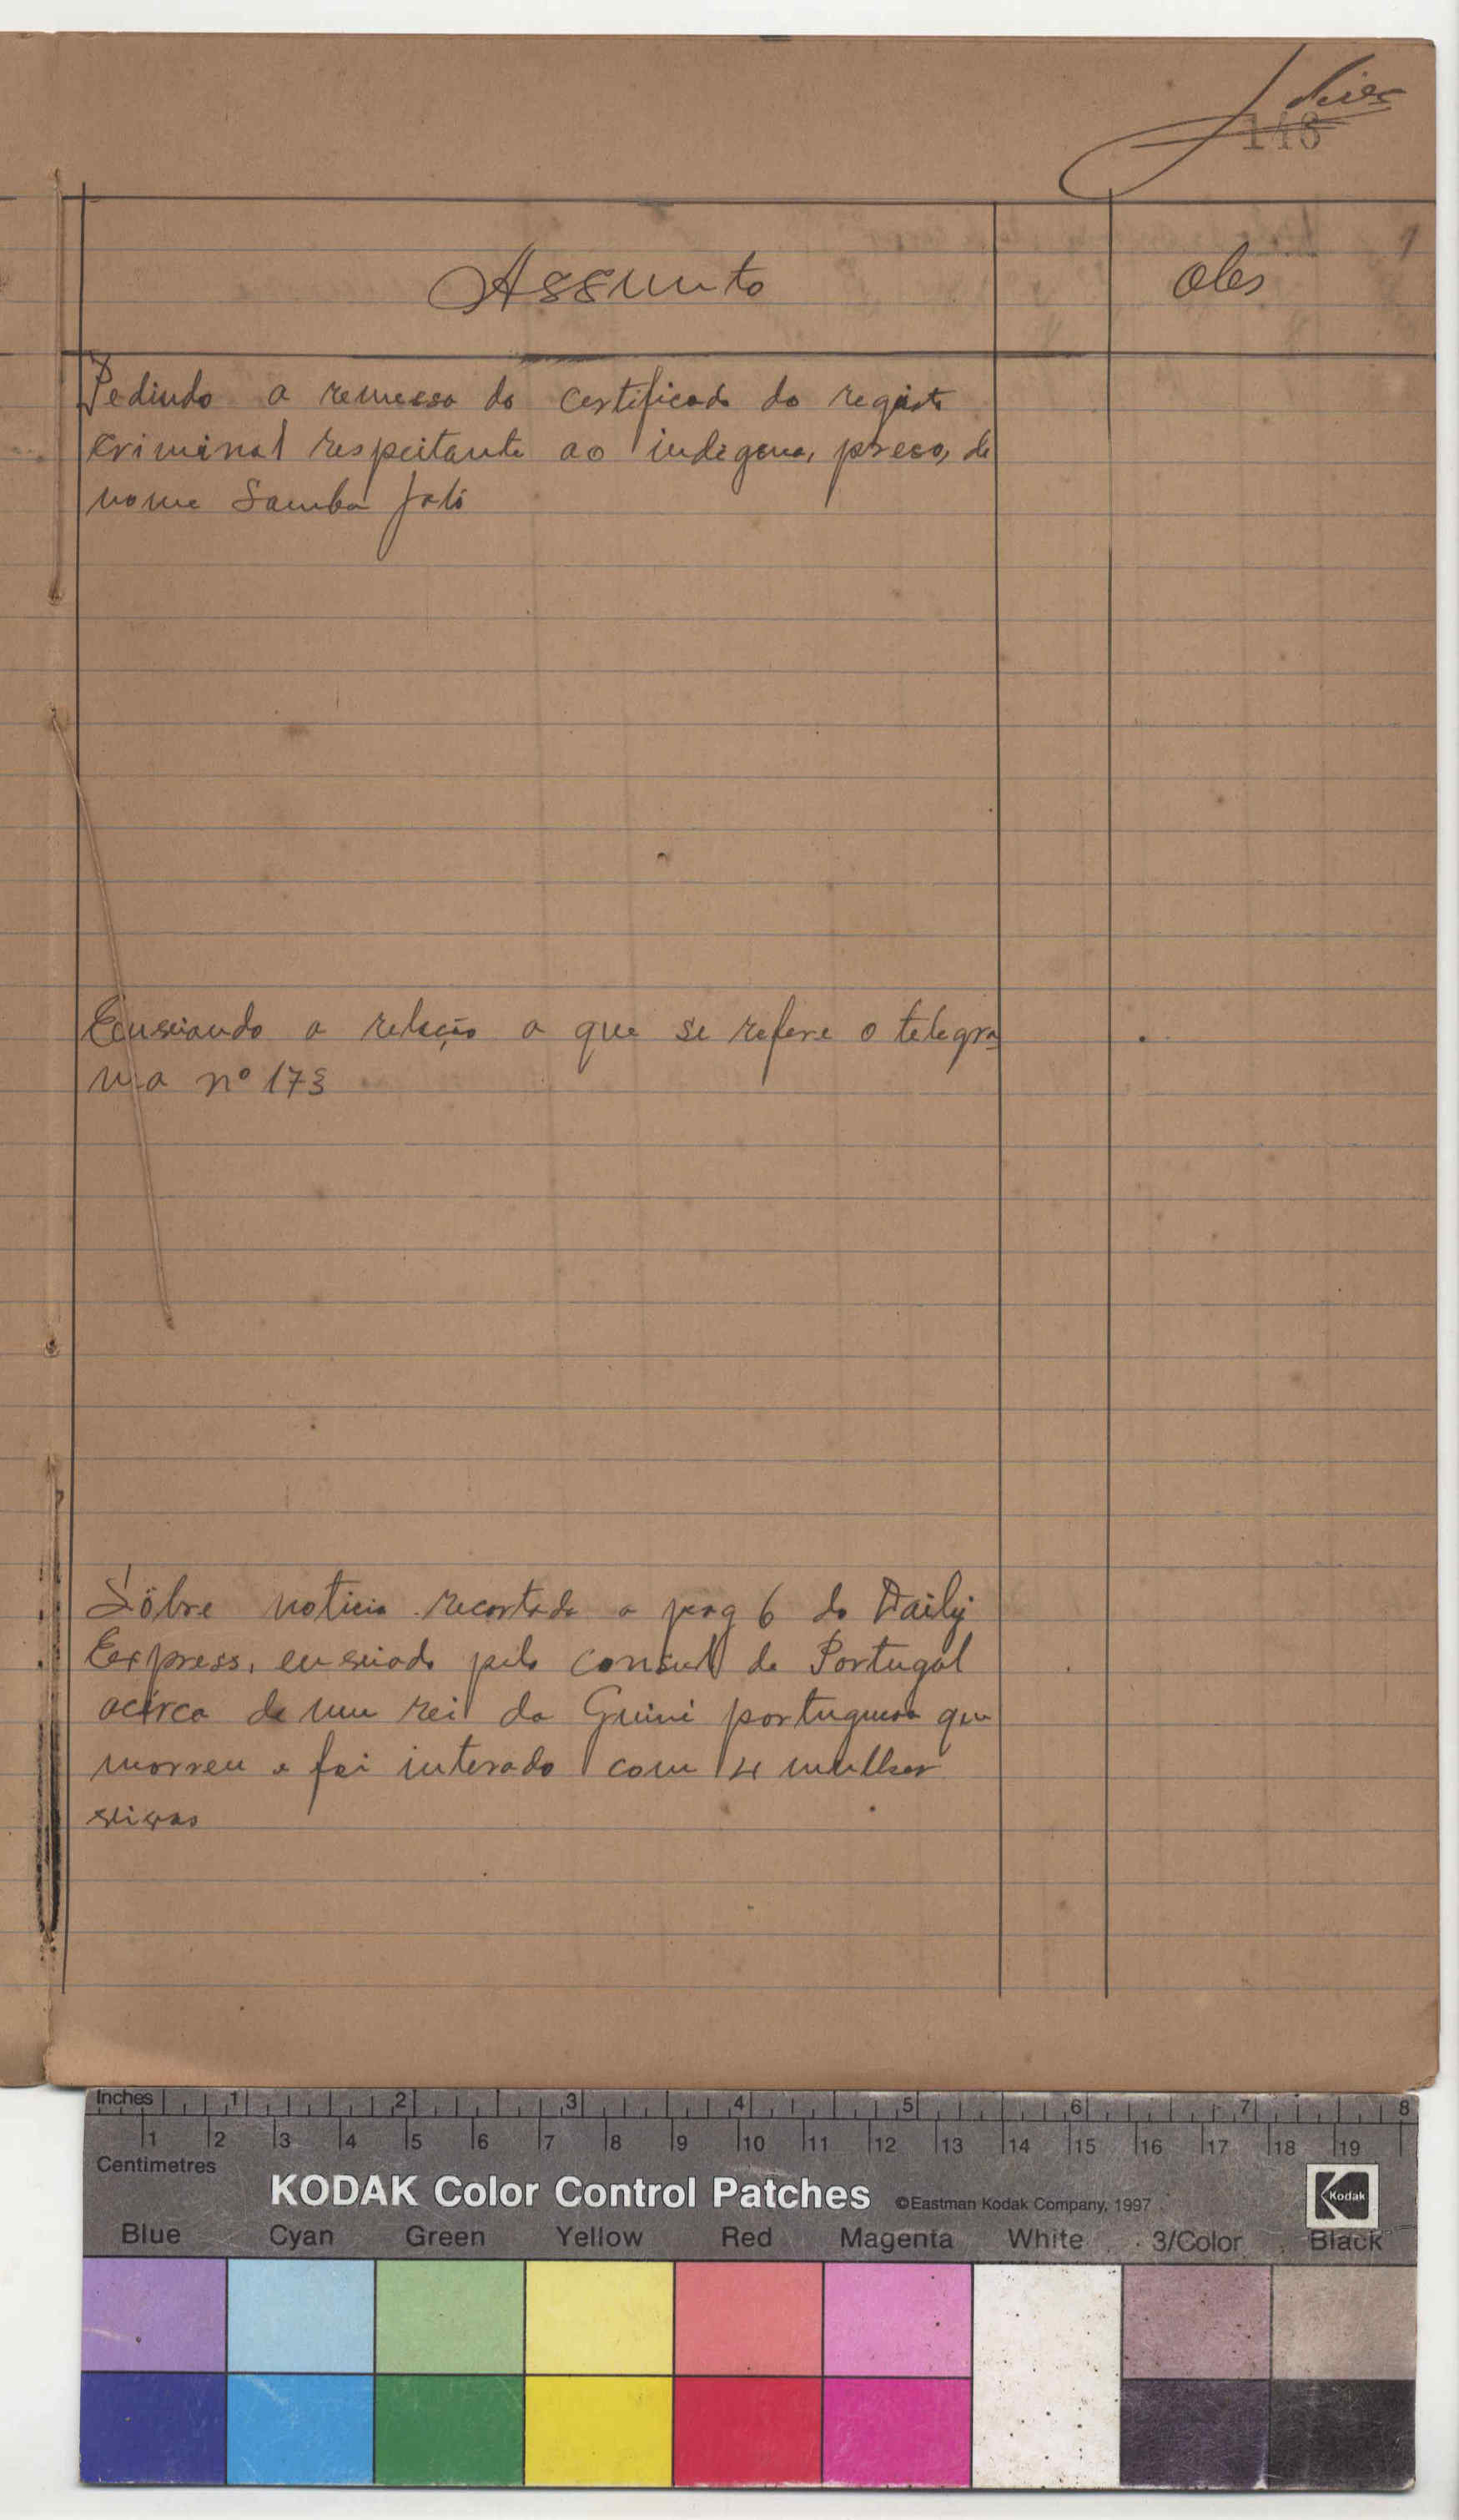 148
Assunto
Obs
Pedindo a remessa do certificado do registo
criminal respeitante ao indigena, preso, de
nome Samba Jaló
Enviando a relação a que se refere o telegra
ma nº 173
Sôbre noticia recortada a pag 6 do Daily
Express, enviado pelo consul de Portugal
acêrca de um rei da Guiné portuguesa que
morreu e foi interado com 4 mulher
vivas
Inches 1 2 3 4 5 6 7 8
1 2 3 4 5 6 7 8 9 10 11 12 13 14 15 16 17 18 19
Centimetres
KODAK Color Control Patches ©Eastman Kodak Company, 1997 Kodak
Blue Cyan Green Yellow Red Magenta White 3/Color Black